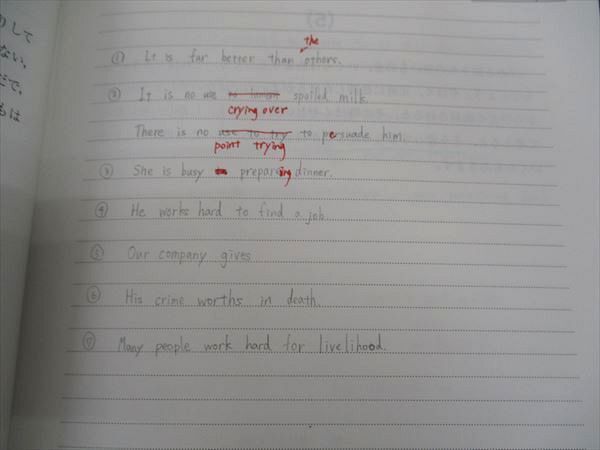 (5)
りして
ない。
だで、
もは
the
① It is far better than others.
② It is no use spoiled milk.
crying over
There is no use to try to persuade him.
point trying
③ She is busy preparing dinner.
④ He works hard to find a job.
⑤ Our company gives
⑥ His crime worths in death.
⑦ Many people work hard for livelihood.